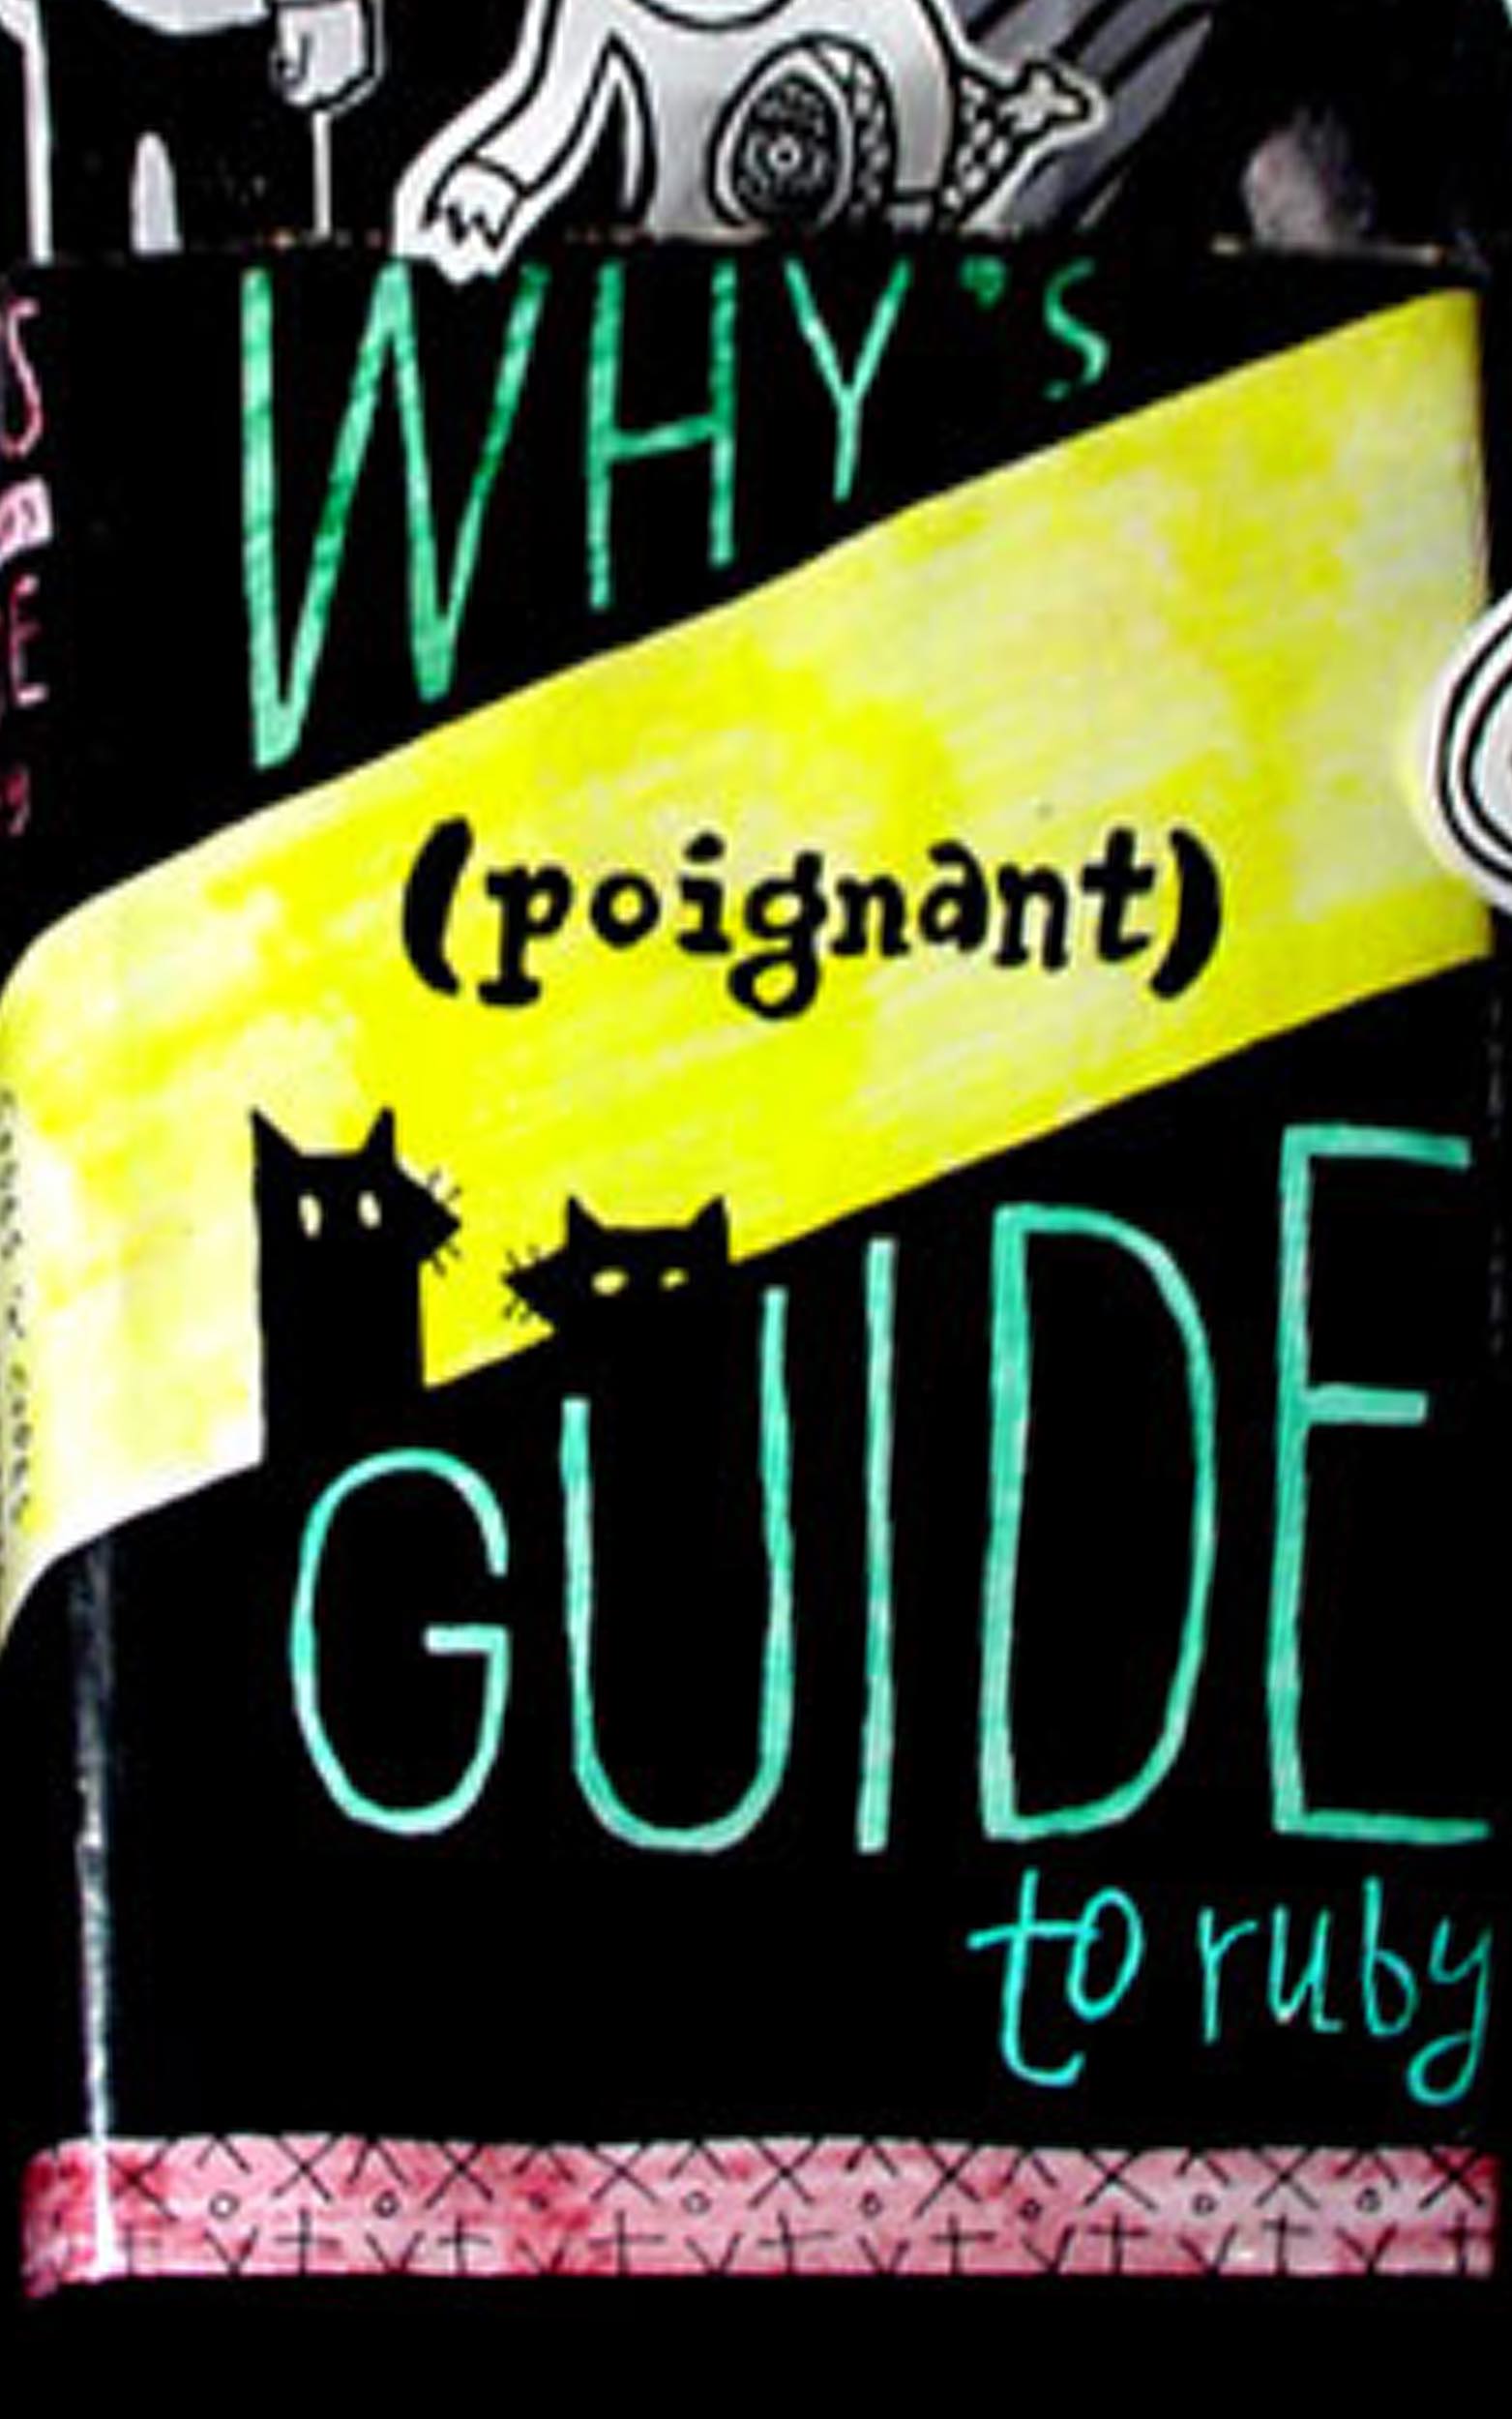 WHY'S
(poignant)
GUIDE
to ruby